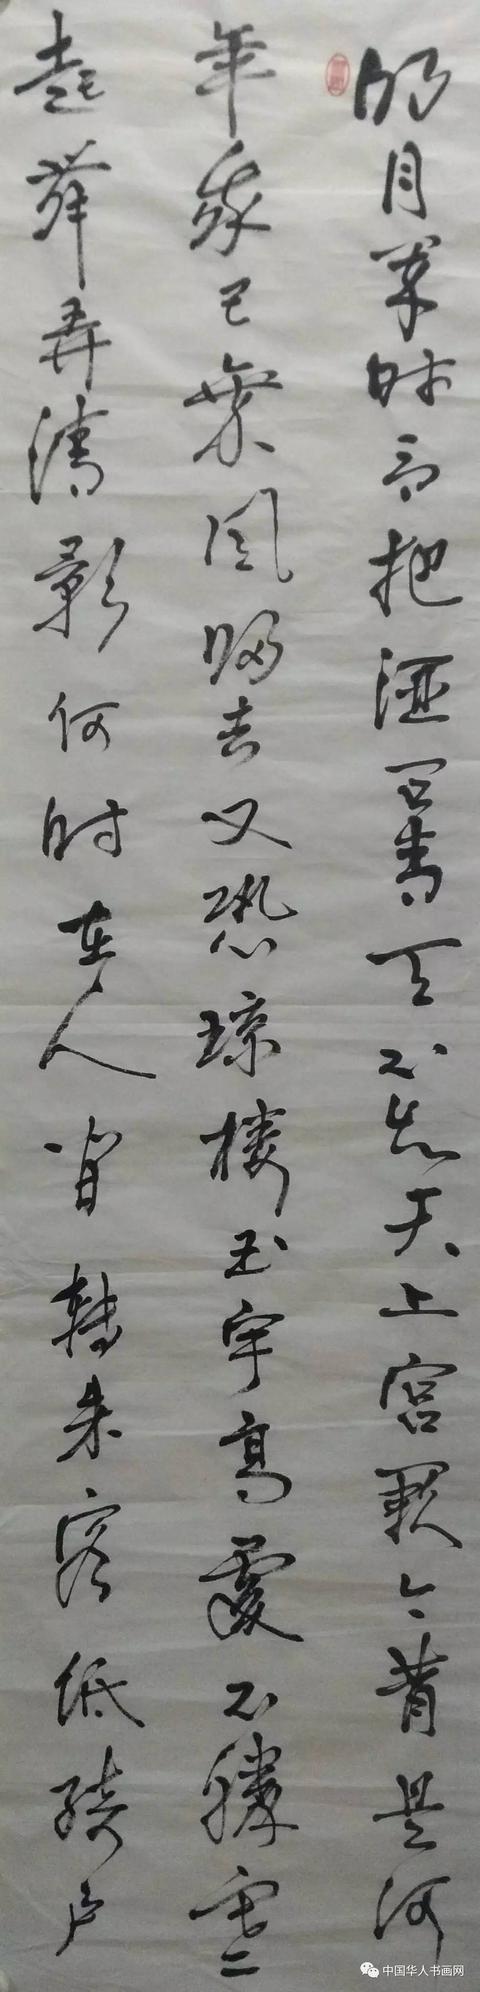 明月幾时有把酒问青天不知天上宫阙今昔是何
年我已乘风歸去又恐琼楼玉宇高處不勝寒
起舞弄清影何时在人间轉朱阁低绮户
中国华人书画网